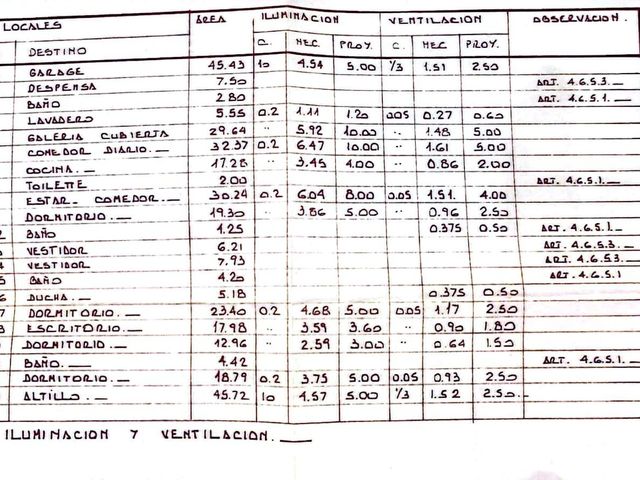 LOCALES AREA ILUMINACION VENTILACION OBSERVACION.
DESTINO C. NEC. PROY. C. NEC PROY.
GARAGE 45.43 10 4.54 5.00 1/3 1.51 2.50
DESPENSA 7.50 ART. 4.6.5.3.
BAÑO 2.80 ART. 4.6.5.1.
LAVADERO 5.55 0.2 1.11 1.20 0.05 0.27 0.60
GALERIA CUBIERTA 29.64 " 5.92 10.00 " 1.48 5.00
COMEDOR DIARIO. 32.37 0.2 6.47 10.00 " 1.61 5.00
COCINA. 17.28 " 3.45 4.00 " 0.86 2.00
TOILETTE 2.00 ART. 4.6.5.1.
ESTAR_ COMEDOR. 30.24 0.2 6.04 8.00 0.05 1.51. 4.00
DORMITORIO. 19.30 " 3.86 5.00 " 0.96 2.50
2 BAÑO 4.25 0.375 0.50 ART. 4.6.5.1.
3 VESTIDOR 6.21 ART. 4.6.5.3.
4 VESTIDOR 7.93 ART. 4.6.5.3.
5 BAÑO 4.20 ART. 4.6.5.1
6 DUCHA. 5.18 0.375 0.50
7 DORMITORIO. 23.40 0.2 4.68 5.00 0.05 1.17 2.50
8 ESCRITORIO. 17.98 " 3.59 3.60 " 0.90 1.80
DORMITORIO. 12.96 " 2.59 3.00 " 0.64 1.50
BAÑO. 4.42 ART. 4.6.5.1.
DORMITORIO. 18.79 0.2 3.75 5.00 0.05 0.93 2.50
ALTILLO. 45.72 10 4.57 5.00 1/3 1.52 2.50.
ILUMINACION Y VENTILACION.